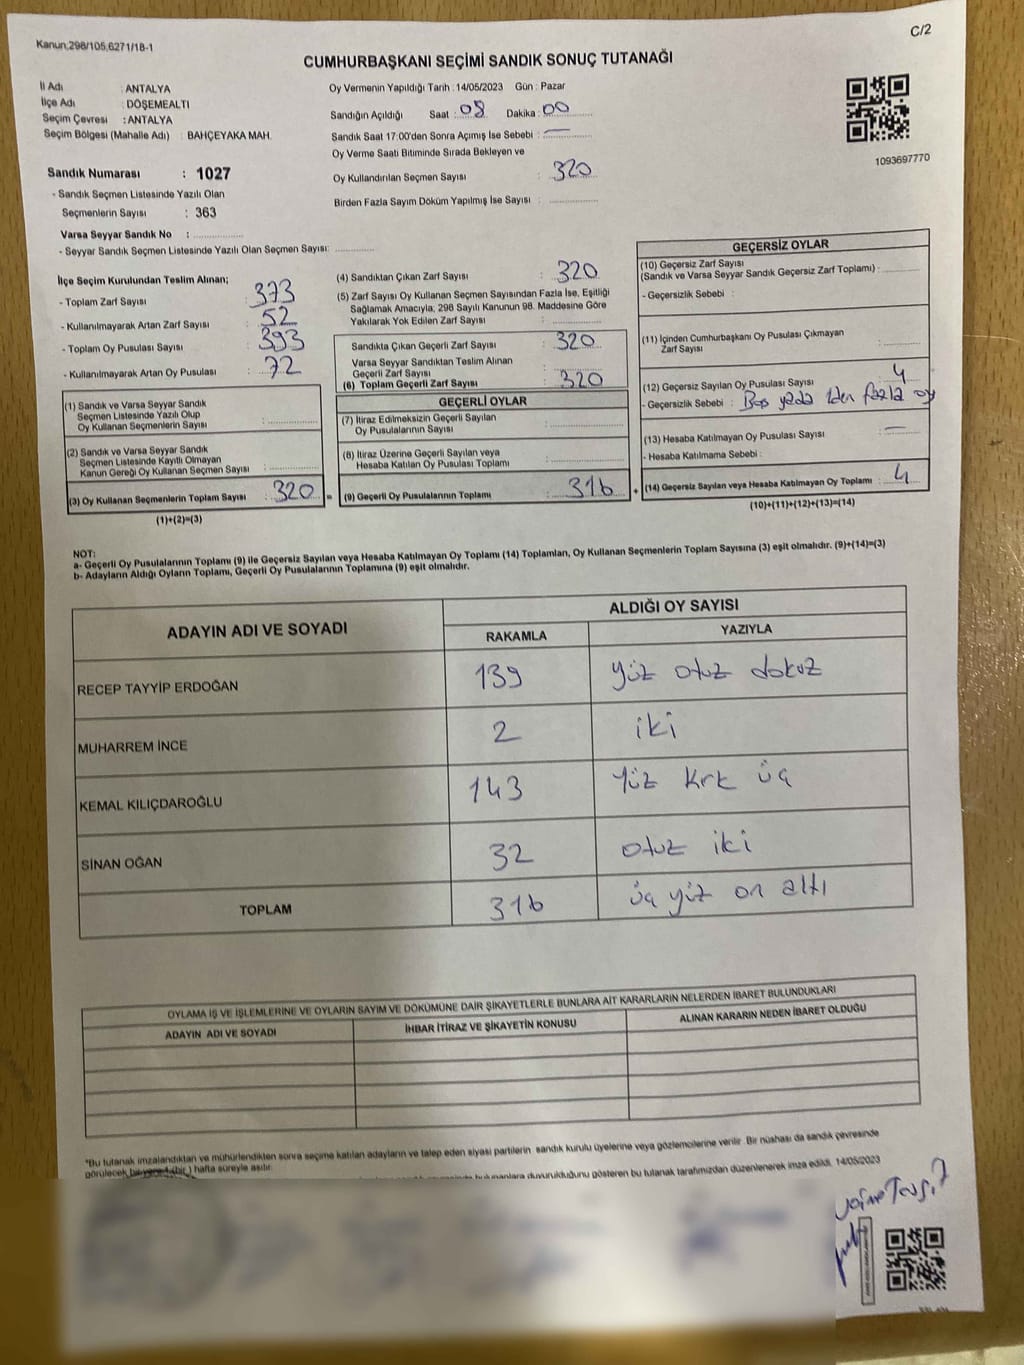 Kanun;298/105,6271/18-1
C/2
CUMHURBAŞKANI SEÇİMİ SANDIK SONUÇ TUTANAĞI
İl Adı : ANTALYA
İlçe Adı : DÖŞEMEALTI
Seçim Çevresi : ANTALYA
Seçim Bölgesi (Mahalle Adı) : BAHÇEYAKA MAH.
Sandık Numarası : 1027
- Sandık Seçmen Listesinde Yazılı Olan
Seçmenlerin Sayısı : 363
Varsa Seyyar Sandık No :
- Seyyar Sandık Seçmen Listesinde Yazılı Olan Seçmen Sayısı:
Oy Vermenin Yapıldığı Tarih : 14/05/2023 Gün : Pazar
Sandığın Açıldığı Saat : 08 Dakika : 00
Sandık Saat 17:00'den Sonra Açımış İse Sebebi : —
Oy Verme Saati Bitiminde Sırada Bekleyen ve
Oy Kullandırılan Seçmen Sayısı : 320
Birden Fazla Sayım Döküm Yapılmış İse Sayısı :
1093697770
İlçe Seçim Kurulundan Teslim Alınan;
- Toplam Zarf Sayısı : 373
- Kullanılmayarak Artan Zarf Sayısı : 52
- Toplam Oy Pusulası Sayısı : 393
- Kullanılmayarak Artan Oy Pusulası : 72
(1) Sandık ve Varsa Seyyar Sandık
Seçmen Listesinde Yazılı Olup
Oy Kullanan Seçmenlerin Sayısı :
(2) Sandık ve Varsa Seyyar Sandık
Seçmen Listesinde Kayıtlı Olmayan
Kanun Gereği Oy Kullanan Seçmen Sayısı :
(3) Oy Kullanan Seçmenlerin Toplam Sayısı : 320
(1)+(2)=(3)
(4) Sandıktan Çıkan Zarf Sayısı : 320
(5) Zarf Sayısı Oy Kullanan Seçmen Sayısından Fazla İse, Eşitliği
Sağlamak Amacıyla, 298 Sayılı Kanunun 98. Maddesine Göre
Yakılarak Yok Edilen Zarf Sayısı :
Sandıkta Çıkan Geçerli Zarf Sayısı : 320
Varsa Seyyar Sandıktan Teslim Alınan
Geçerli Zarf Sayısı :
(6) Toplam Geçerli Zarf Sayısı : 320
GEÇERLİ OYLAR
(7) İtiraz Edilmeksizin Geçerli Sayılan
Oy Pusulalarının Sayısı :
(8) İtiraz Üzerine Geçerli Sayılan veya
Hesaba Katılan Oy Pusulası Toplamı :
= (9) Geçerli Oy Pusulalarının Toplamı : 316
GEÇERSİZ OYLAR
(10) Geçersiz Zarf Sayısı
(Sandık ve Varsa Seyyar Sandık Geçersiz Zarf Toplamı) :
- Geçersizlik Sebebi :
(11) İçinden Cumhurbaşkanı Oy Pusulası Çıkmayan
Zarf Sayısı :
(12) Geçersiz Sayılan Oy Pusulası Sayısı : 4
- Geçersizlik Sebebi : Boş yada 1den fazla oy
(13) Hesaba Katılmayan Oy Pusulası Sayısı : —
- Hesaba Katılmama Sebebi :
+ (14) Geçersiz Sayılan veya Hesaba Katılmayan Oy Toplamı : 4
(10)+(11)+(12)+(13)=(14)
NOT:
a- Geçerli Oy Pusulalarının Toplamı (9) ile Geçersiz Sayılan veya Hesaba Katılmayan Oy Toplamı (14) Toplamları, Oy Kullanan Seçmenlerin Toplam Sayısına (3) eşit olmalıdır. (9)+(14)=(3)
b- Adayların Aldığı Oyların Toplamı, Geçerli Oy Pusulalarının Toplamına (9) eşit olmalıdır.
ADAYIN ADI VE SOYADI
ALDIĞI OY SAYISI
RAKAMLA YAZIYLA
RECEP TAYYİP ERDOĞAN 139 yüz otuz dokuz
MUHARREM İNCE 2 iki
KEMAL KILIÇDAROĞLU 143 Yüz kırk üç
SİNAN OĞAN 32 otuz iki
TOPLAM 316 üç yüz on altı
OYLAMA İŞ VE İŞLEMLERİNE VE OYLARIN SAYIM VE DÖKÜMÜNE DAİR ŞİKAYETLERLE BUNLARA AİT KARARLARIN NELERDEN İBARET BULUNDUKLARI
ADAYIN ADI VE SOYADI İHBAR İTİRAZ VE ŞİKAYETİN KONUSU ALINAN KARARIN NEDEN İBARET OLDUĞU
*Bu tutanak imzalandıktan ve mühürlendikten sonra seçime katılan adayların ve talep eden siyasi partilerin sandık kurulu üyelerine veya gözlemcilerine verilir. Bir nüshası da sandık çevresinde
görülecek bir yere 1 (bir) hafta süreyle asılır.
bulunanlara duyurulduğunu gösteren bu tutanak tarafımızdan düzenlenerek imza edildi. 14/05/2023